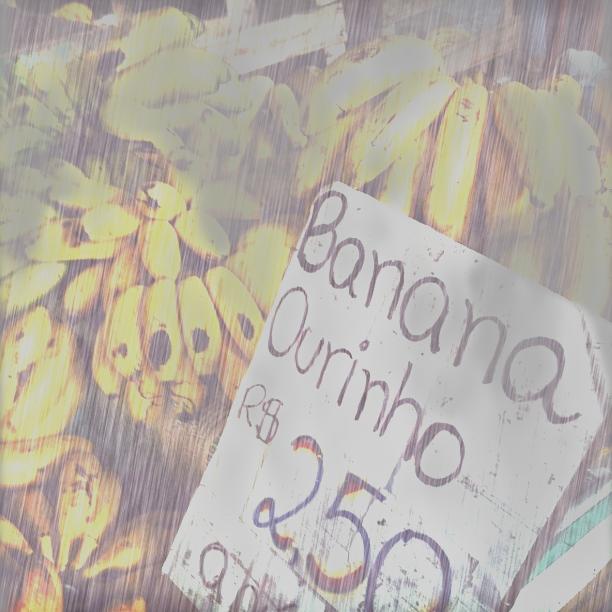 Banana
Ourinho
R$
2,50